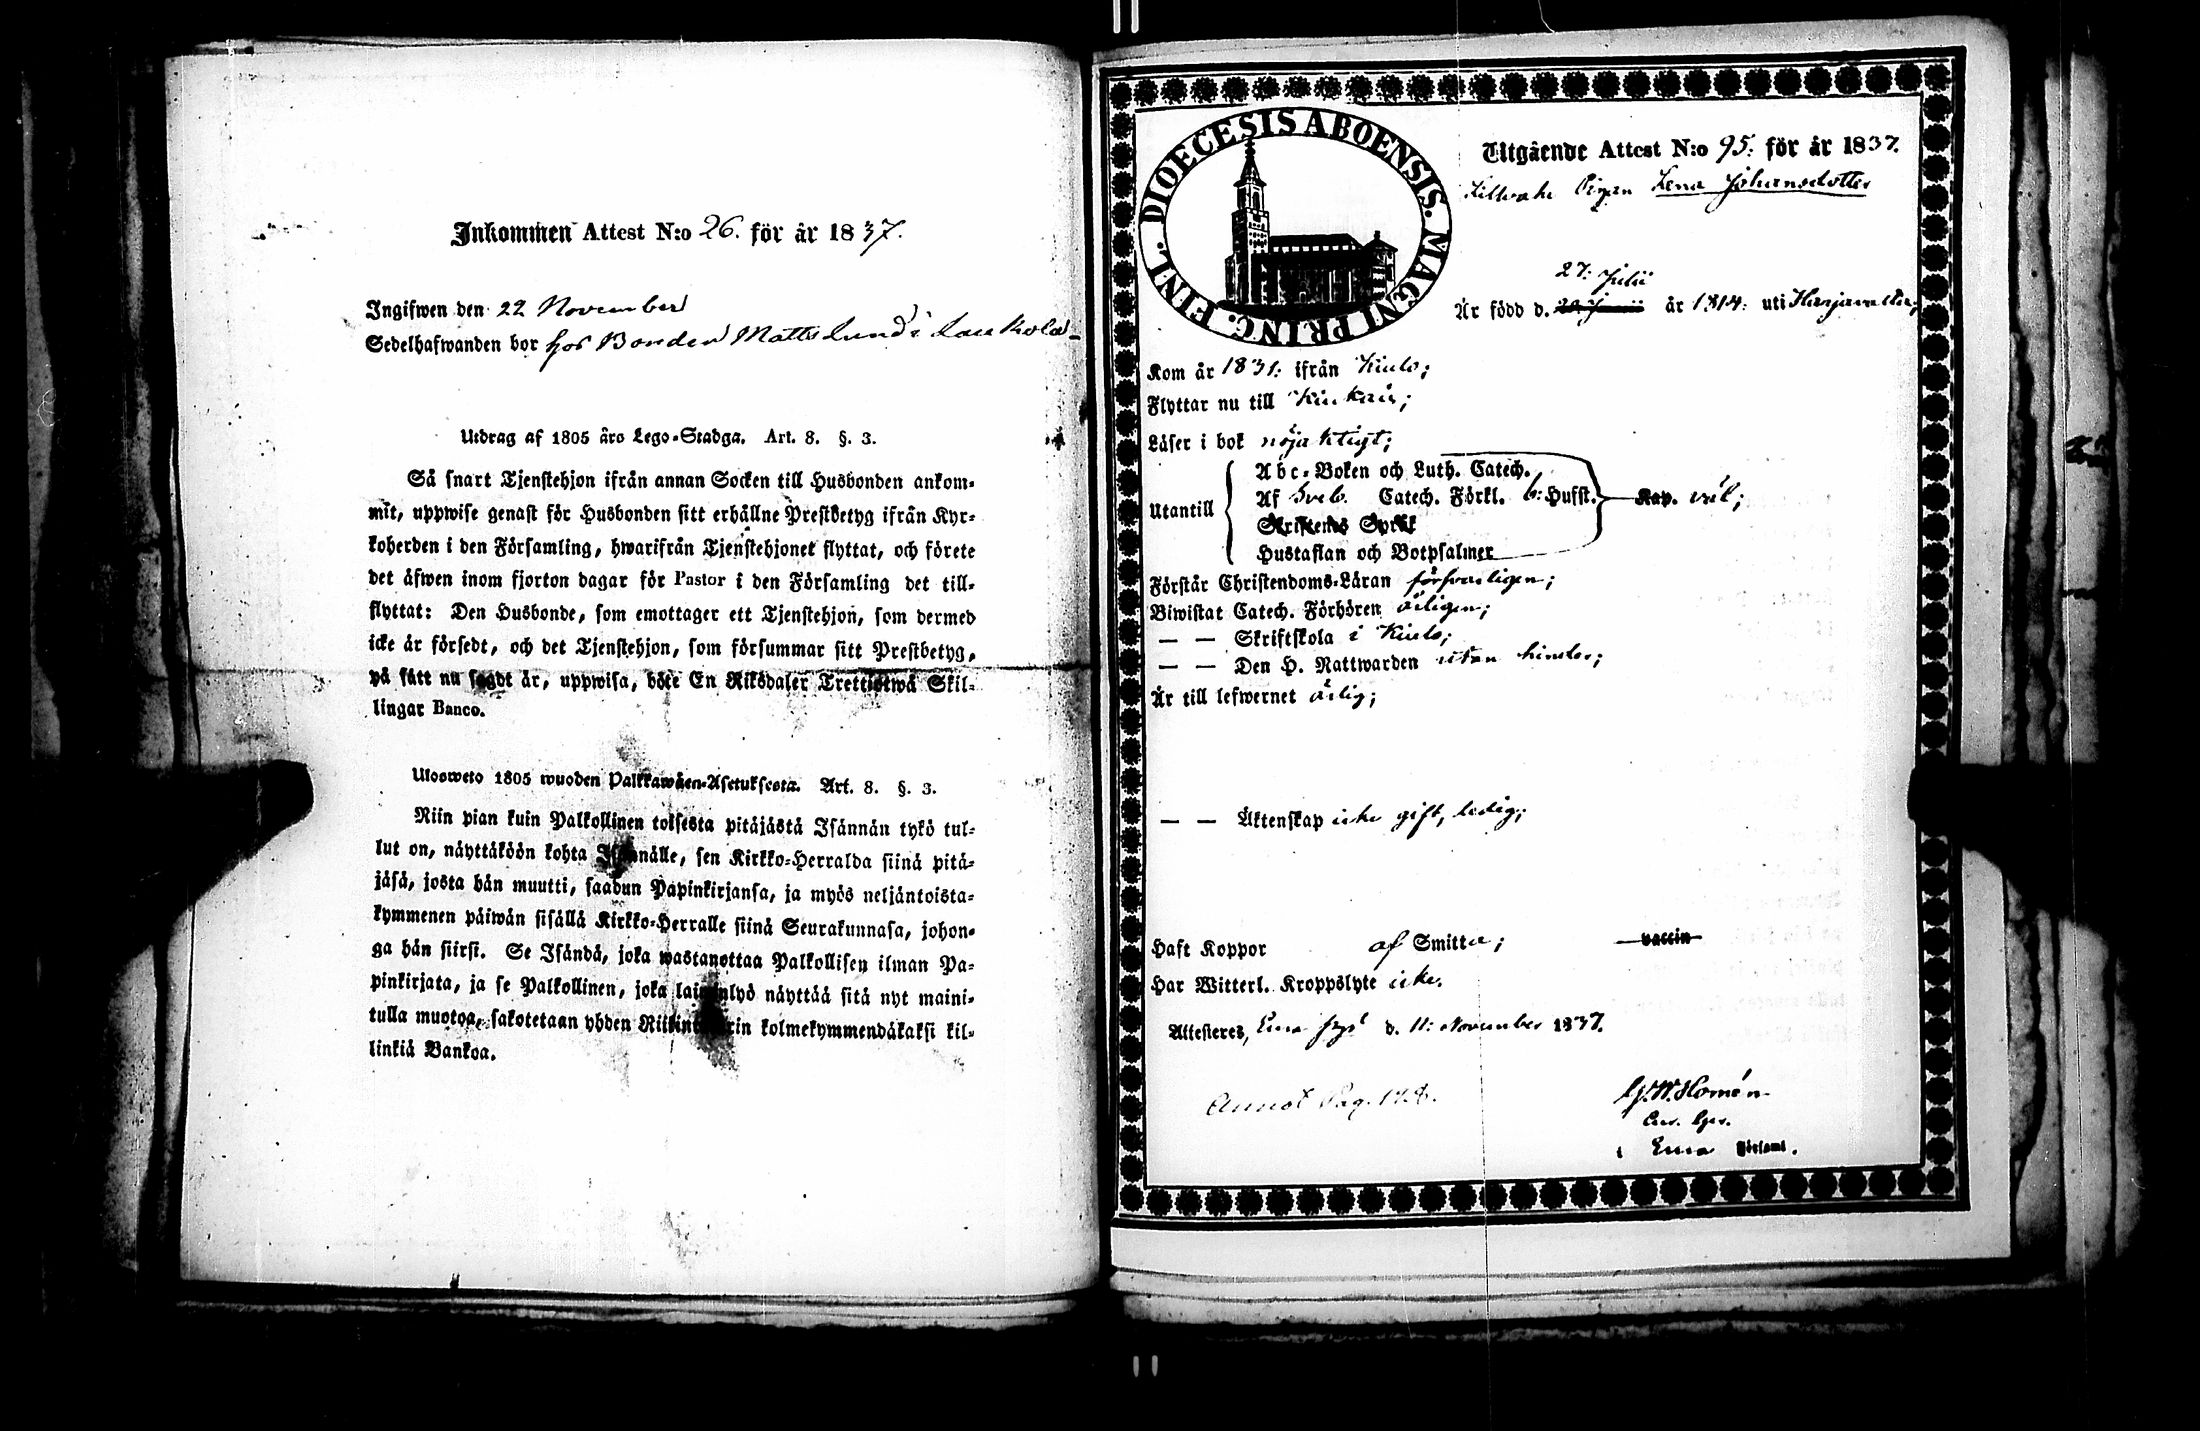 Inkommen Attest N:o 26. för år 1837.
Ingifwen den 22 November
Sedelhafwanden bor hos Bonden Matts Lund i Laukola
Utdrag af 1805 års Lego-Stadga. Art. 8. §. 3.
Så snart Tjenstehjon ifrån annan Socken till Husbonden ankom-
mit, uppwise genast för Husbonden sitt erhållne Prestbetyg ifrån Kyr-
koherden i den Församling, hwarifrån Tjenstehjonet flyttat, och förete
det äfwen inom fjorton dagar för Pastor i den Församling det till-
flyttat: Den Husbonde, som emottager ett Tjenstehjon, som dermed
icke är försedt, och det Tjenstehjon, som försummar sitt Prestbetyg,
på sätt nu sagdt är, uppwisa, böte En Riksdaler Trettiotwå Skil-
lingar Banco.
Ulosweto 1805 wuoden Palkkawäen-Asetuksesta. Art. 8. §. 3.
Niin pian kuin Palkollinen toisesta pitäjästä Isännän tykö tul-
lut on, näyttäköön kohta Isännälle, sen Kirkko-Herralda siinä pitä-
jäsä, josta hän muutti, saadun Papinkirjansa, ja myös neljäntoista-
kymmenen päiwän sisällä Kirkko-Herralle siinä Seurakunnasa, johon-
ga hän siirsi. Se Isändä, joka wastanottaa Palkollisen ilman Pa-
pinkirjata, ja se Palkollinen, joka laiminlyö näyttää sitä nyt maini-
tulla muotoa, sakotetaan yhden Riikintalarin kolmekymmendäkaksi kil-
linkiä Bankoa.
DIOECESIS ABOENSIS. MAGNI PRINC. FINL.
Utgående Attest N:o 95: för år 1837.
Pigan Lena Johansdotter
27: Julii
Är född d. år 1814: uti Harjavalta;
Kom år 1831: ifrån Kiulo;
Flyttar nu till Kiukais;
Läser i bok nöjaktigt;
Utantill
Abc-Boken och Luth. Catech.
Af Sveb. Catech. Förkl. b: Husst. Kap. väl;
Skriftenes Språk
Hustaflan och Botpsalmer
Förstår Christendoms-Läran försvarligen;
Biwistat Catech. Förhören årligen;
— — Skriftskola i Kiulo;
— — Den H. Nattwarden utan hinder;
Är till lefwernet ärlig;
— — Äktenskap icke gift, ledig;
Haft Koppor af Smitta; vaccin
Har Witterl. Kroppslyte icke.
Attesteres, Eura d. 11: November 1837.
Annot Pag. 178.
G. W. Homén
i Eura Församl.